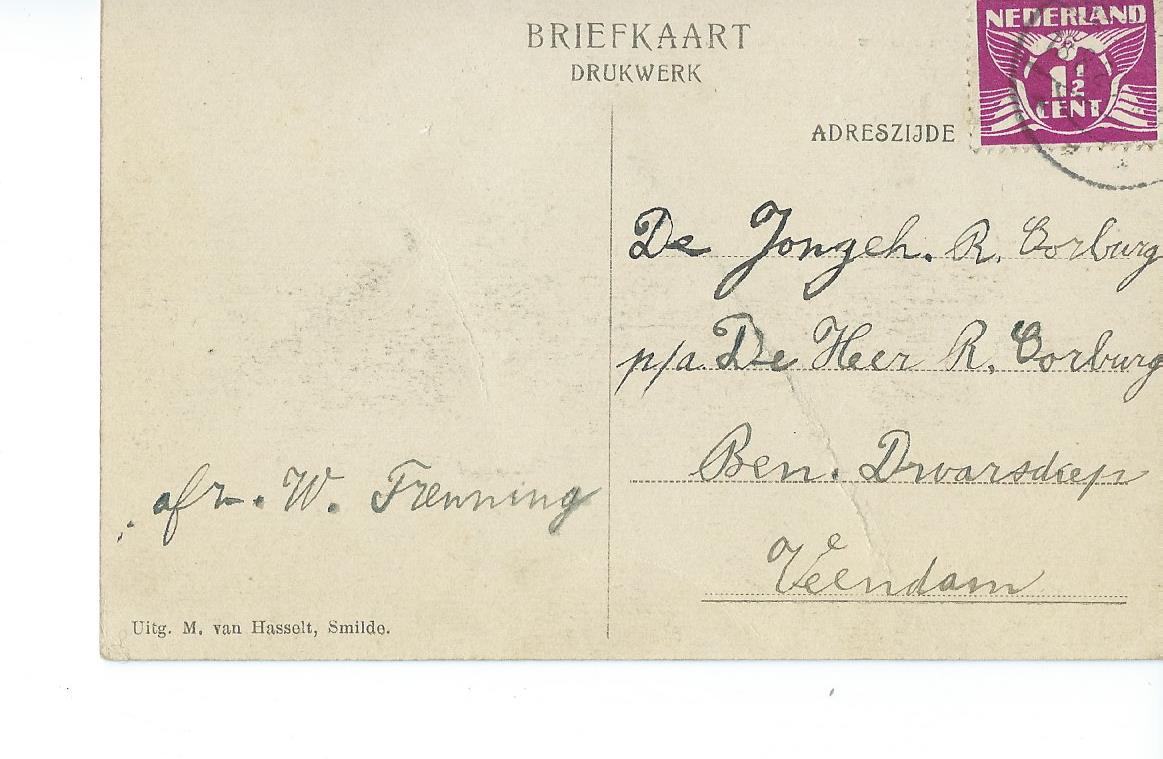 BRIEFKAART
DRUKWERK
NEDERLAND
1½
CENT
ADRESZIJDE
De Jongeh. R. Corburg
p/a. De Heer R. Corburg
Ben. Dwarsdiep
Veendam
afz. W. Frenning
Uitg. M. van Hasselt, Smilde.